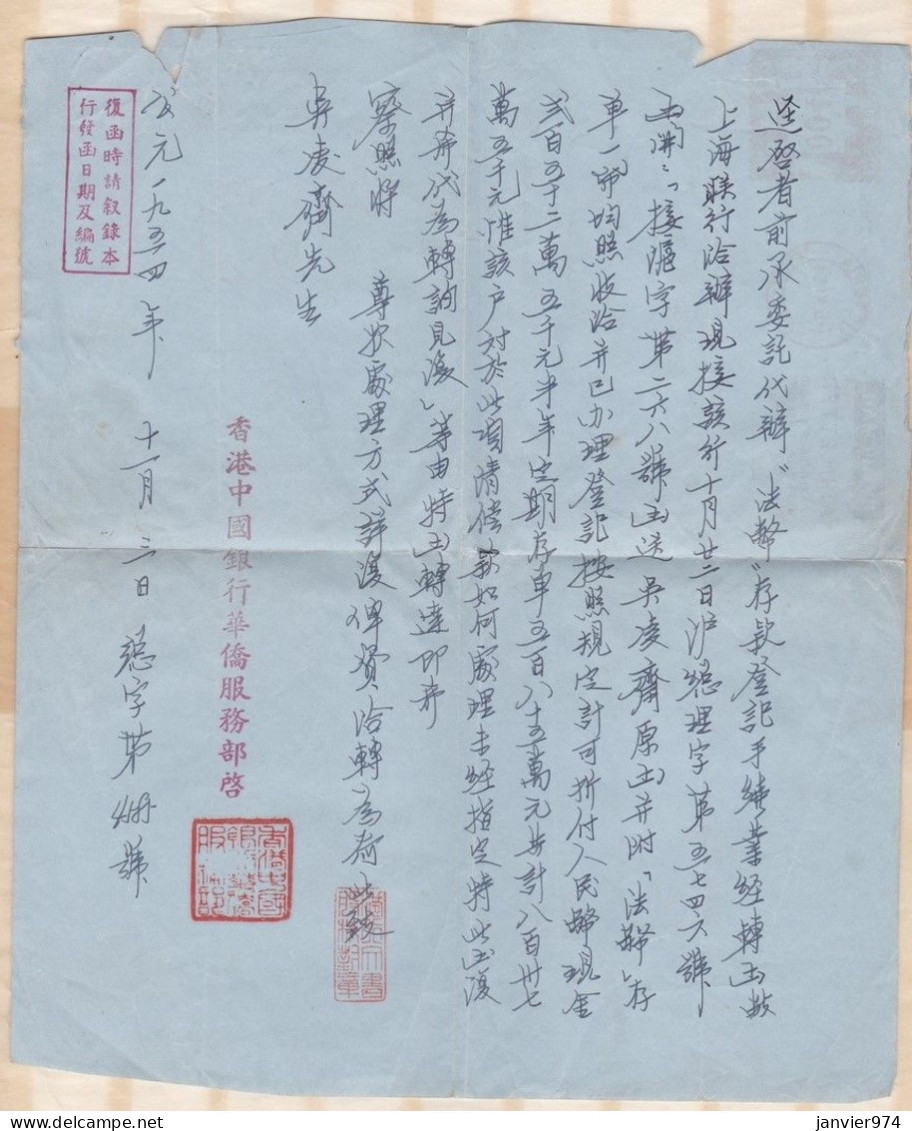 逕啓者前承委託代辦“法幣”存款登記手續業經轉函敝
上海聯行洽辦現接該行十月廿二日沪總理字第五七四六號
函開：「接滙字第二六八號函送吳凌齊原函并附「法幣」存
單一紙均照收洽并已办理登記按照規定計可折付人民幣現金
弍百五十二萬五千元半年定期存單五百八十五萬元共計八百卅七
萬五千元惟該户对於此項清偿款如何處理未经指定特此函復
并希代為轉詢見復」等由特函轉達即希
察照将 尊款處理方式詳復俾資洽轉為荷此致
吳凌齊先生
香港中國銀行華僑服務部啓
公元一九五四年 十一月 三日 總字第 號
復函時請叙錄本
行發函日期及編號
janvier974
delcampe.net